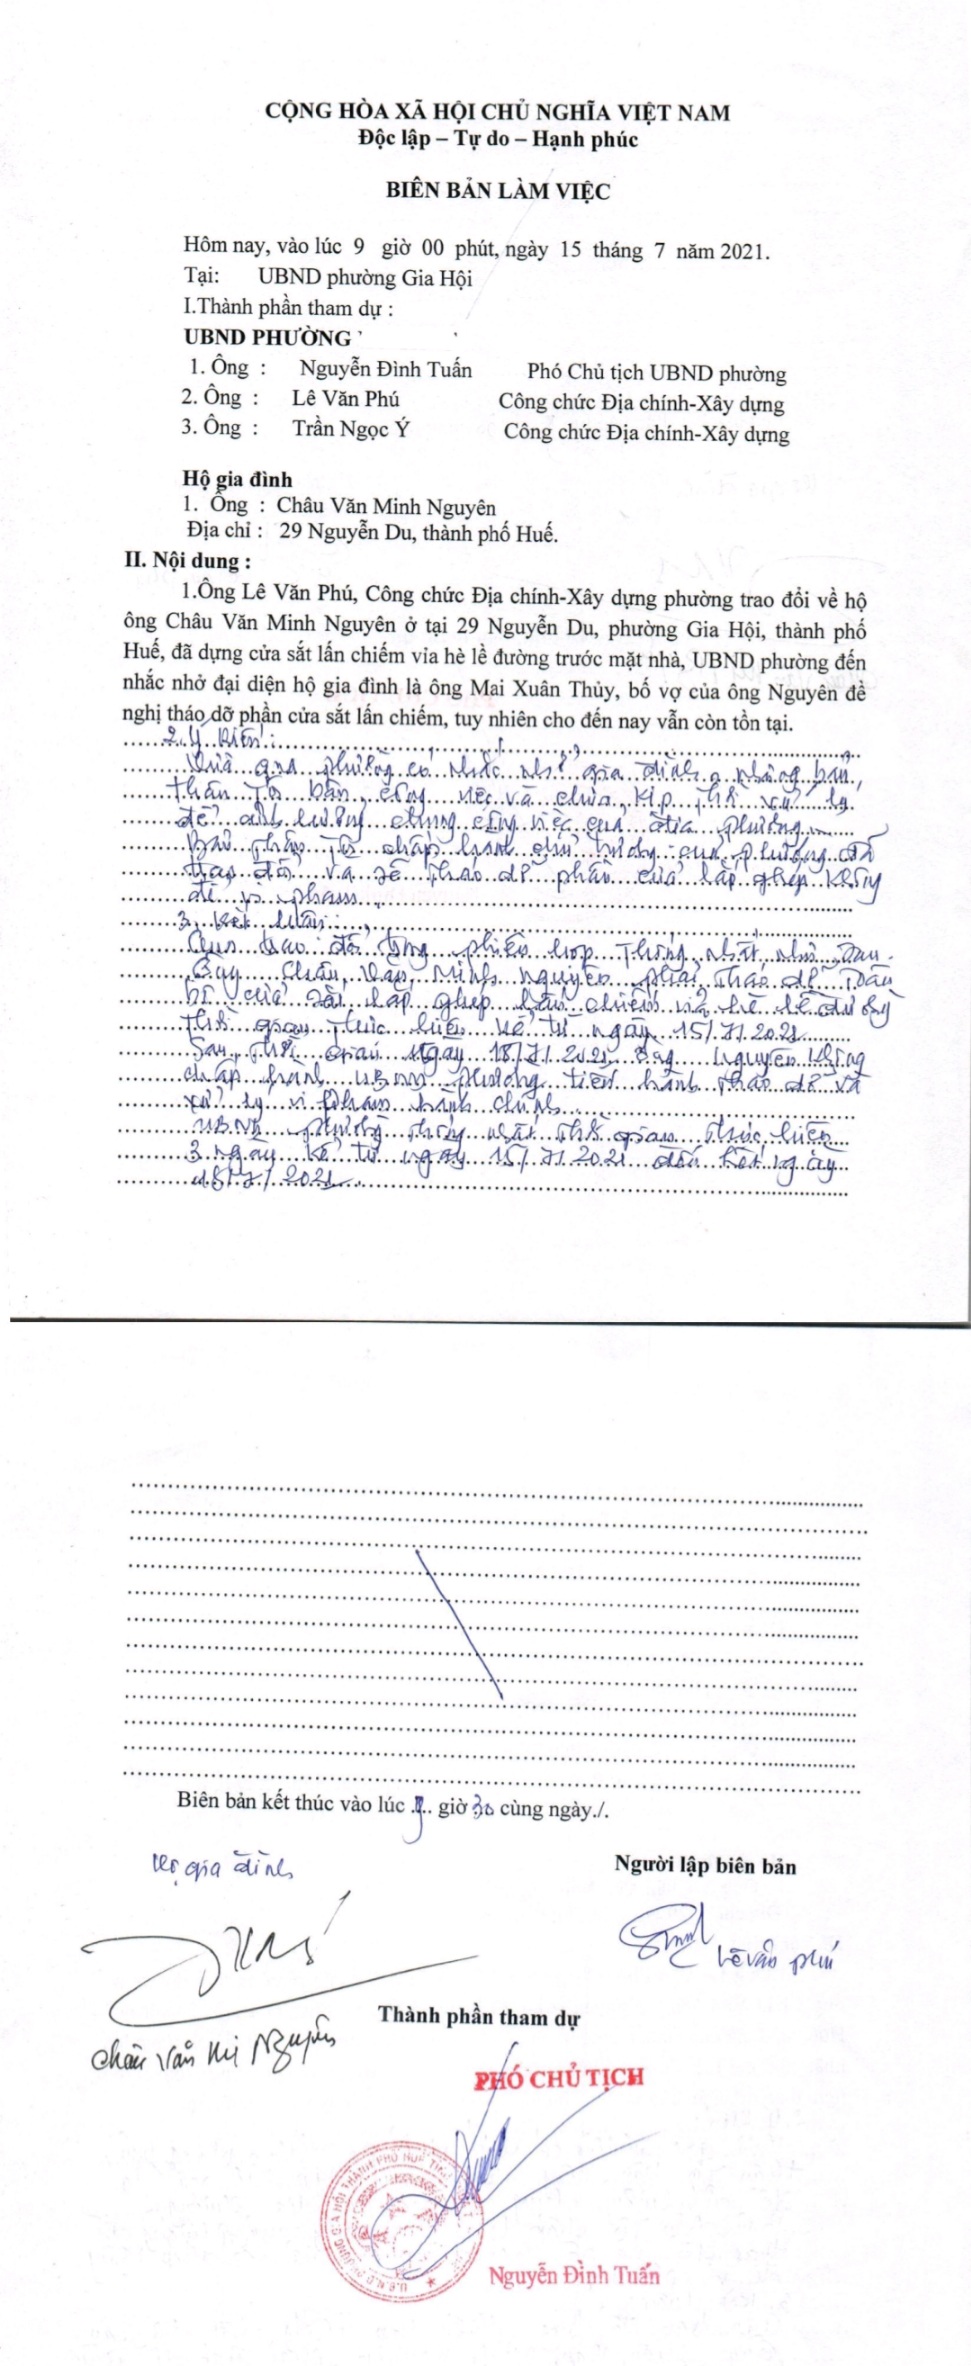 CỘNG HÒA XÃ HỘI CHỦ NGHĨA VIỆT NAM
Độc lập – Tự do – Hạnh phúc
BIÊN BẢN LÀM VIỆC
Hôm nay, vào lúc 9 giờ 00 phút, ngày 15 tháng 7 năm 2021.
Tại: UBND phường Gia Hội
I.Thành phần tham dự :
UBND PHƯỜNG
1. Ông : Nguyễn Đình Tuấn Phó Chủ tịch UBND phường
2. Ông : Lê Văn Phú Công chức Địa chính-Xây dựng
3. Ông : Trần Ngọc Ý Công chức Địa chính-Xây dựng
Hộ gia đình
1. Ông : Châu Văn Minh Nguyên
Địa chỉ : 29 Nguyễn Du, thành phố Huế.
II. Nội dung :
1.Ông Lê Văn Phú, Công chức Địa chính-Xây dựng phường trao đổi về hộ
ông Châu Văn Minh Nguyên ở tại 29 Nguyễn Du, phường Gia Hội, thành phố
Huế, đã dựng cửa sắt lấn chiếm vỉa hè lề đường trước mặt nhà, UBND phường đến
nhắc nhở đại diện hộ gia đình là ông Mai Xuân Thủy, bố vợ của ông Nguyên đề
nghị tháo dỡ phần cửa sắt lấn chiếm, tuy nhiên cho đến nay vẫn còn tồn tại.
2. Ý kiến:
Vừa qua phường có nhắc nhở gia đình, nhưng bản
thân tôi bận công việc và chưa kịp thời xử lý
để ảnh hưởng chung công việc của địa phương
Bản thân tôi chấp hành chủ trương của phường đã
trao đổi và sẽ tháo dỡ phần cửa lắp ghép không
để vi phạm.
3. Kết luận:
Qua trao đổi trong phiên họp thống nhất như sau.
Ông Châu Văn Minh Nguyên phải tháo dỡ toàn
bộ cửa sắt lắp ghép lấn chiếm vỉa hè lề đường
thời gian thực hiện kể từ ngày 15/7/2021
Sau thời gian ngày 18/7/2021 ông Nguyên không
chấp hành UBND phường tiến hành tháo dỡ và
xử lý vi phạm hành chính.
UBND phường thống nhất thời gian thực hiện
3 ngày kể từ ngày 15/7/2021 đến hết ngày
18/7/2021.
Biên bản kết thúc vào lúc giờ 30 cùng ngày./.
Hộ gia đình
Người lập biên bản
Lê Văn Phú
Thành phần tham dự
Châu Văn Nguyên
PHÓ CHỦ TỊCH
Nguyễn Đình Tuấn